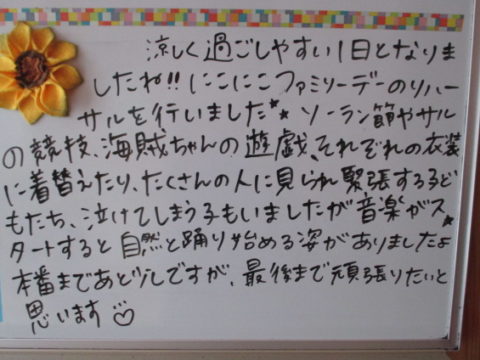 涼しく過ごしやすい1日となりま
したね!!にこにこファミリーデーのリハー
サルを行いました★★ソーラン節やサル
の競技、海賊ちゃんの遊戯、それぞれの衣装
に着替えたり、たくさんの人に見られ緊張する子ど
もたち、泣けてしまう子もいましたが音楽がス
タートすると自然と踊り始める姿がありましたよ★
本番まであと少しですが、最後まで頑張りたいと
思います♡